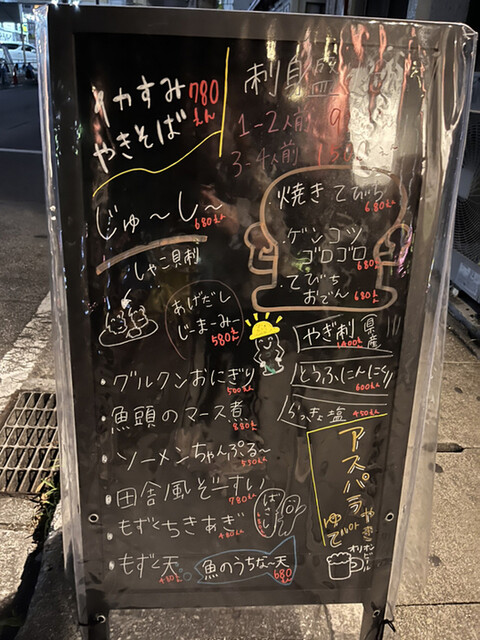 イカすみ
やきそば
780えん
刺身盛
1-2人前 9
3-4人前 150
じゅ〜し〜
680えん
しゃこ貝刺
あげだし
じーまーみー
580えん
・焼きてびち
680えん
・ゲンコツ
ゴロゴロ
680えん
・てびち
おでん 680えん
やぎ刺 県産
1400えん
とうふにんにく
600えん
らっきょ塩 450えん
・グルクンおにぎり
500えん
・魚頭のマース煮
880えん
・ソーメンちゃんぷる〜
580えん
・田舎風ぞーすい
780えん
・もずくちきあぎ
480えん
・もずく天
魚のうちな〜天
680えん
アスパラ
やき
or
ゆで
オリオン
ビール